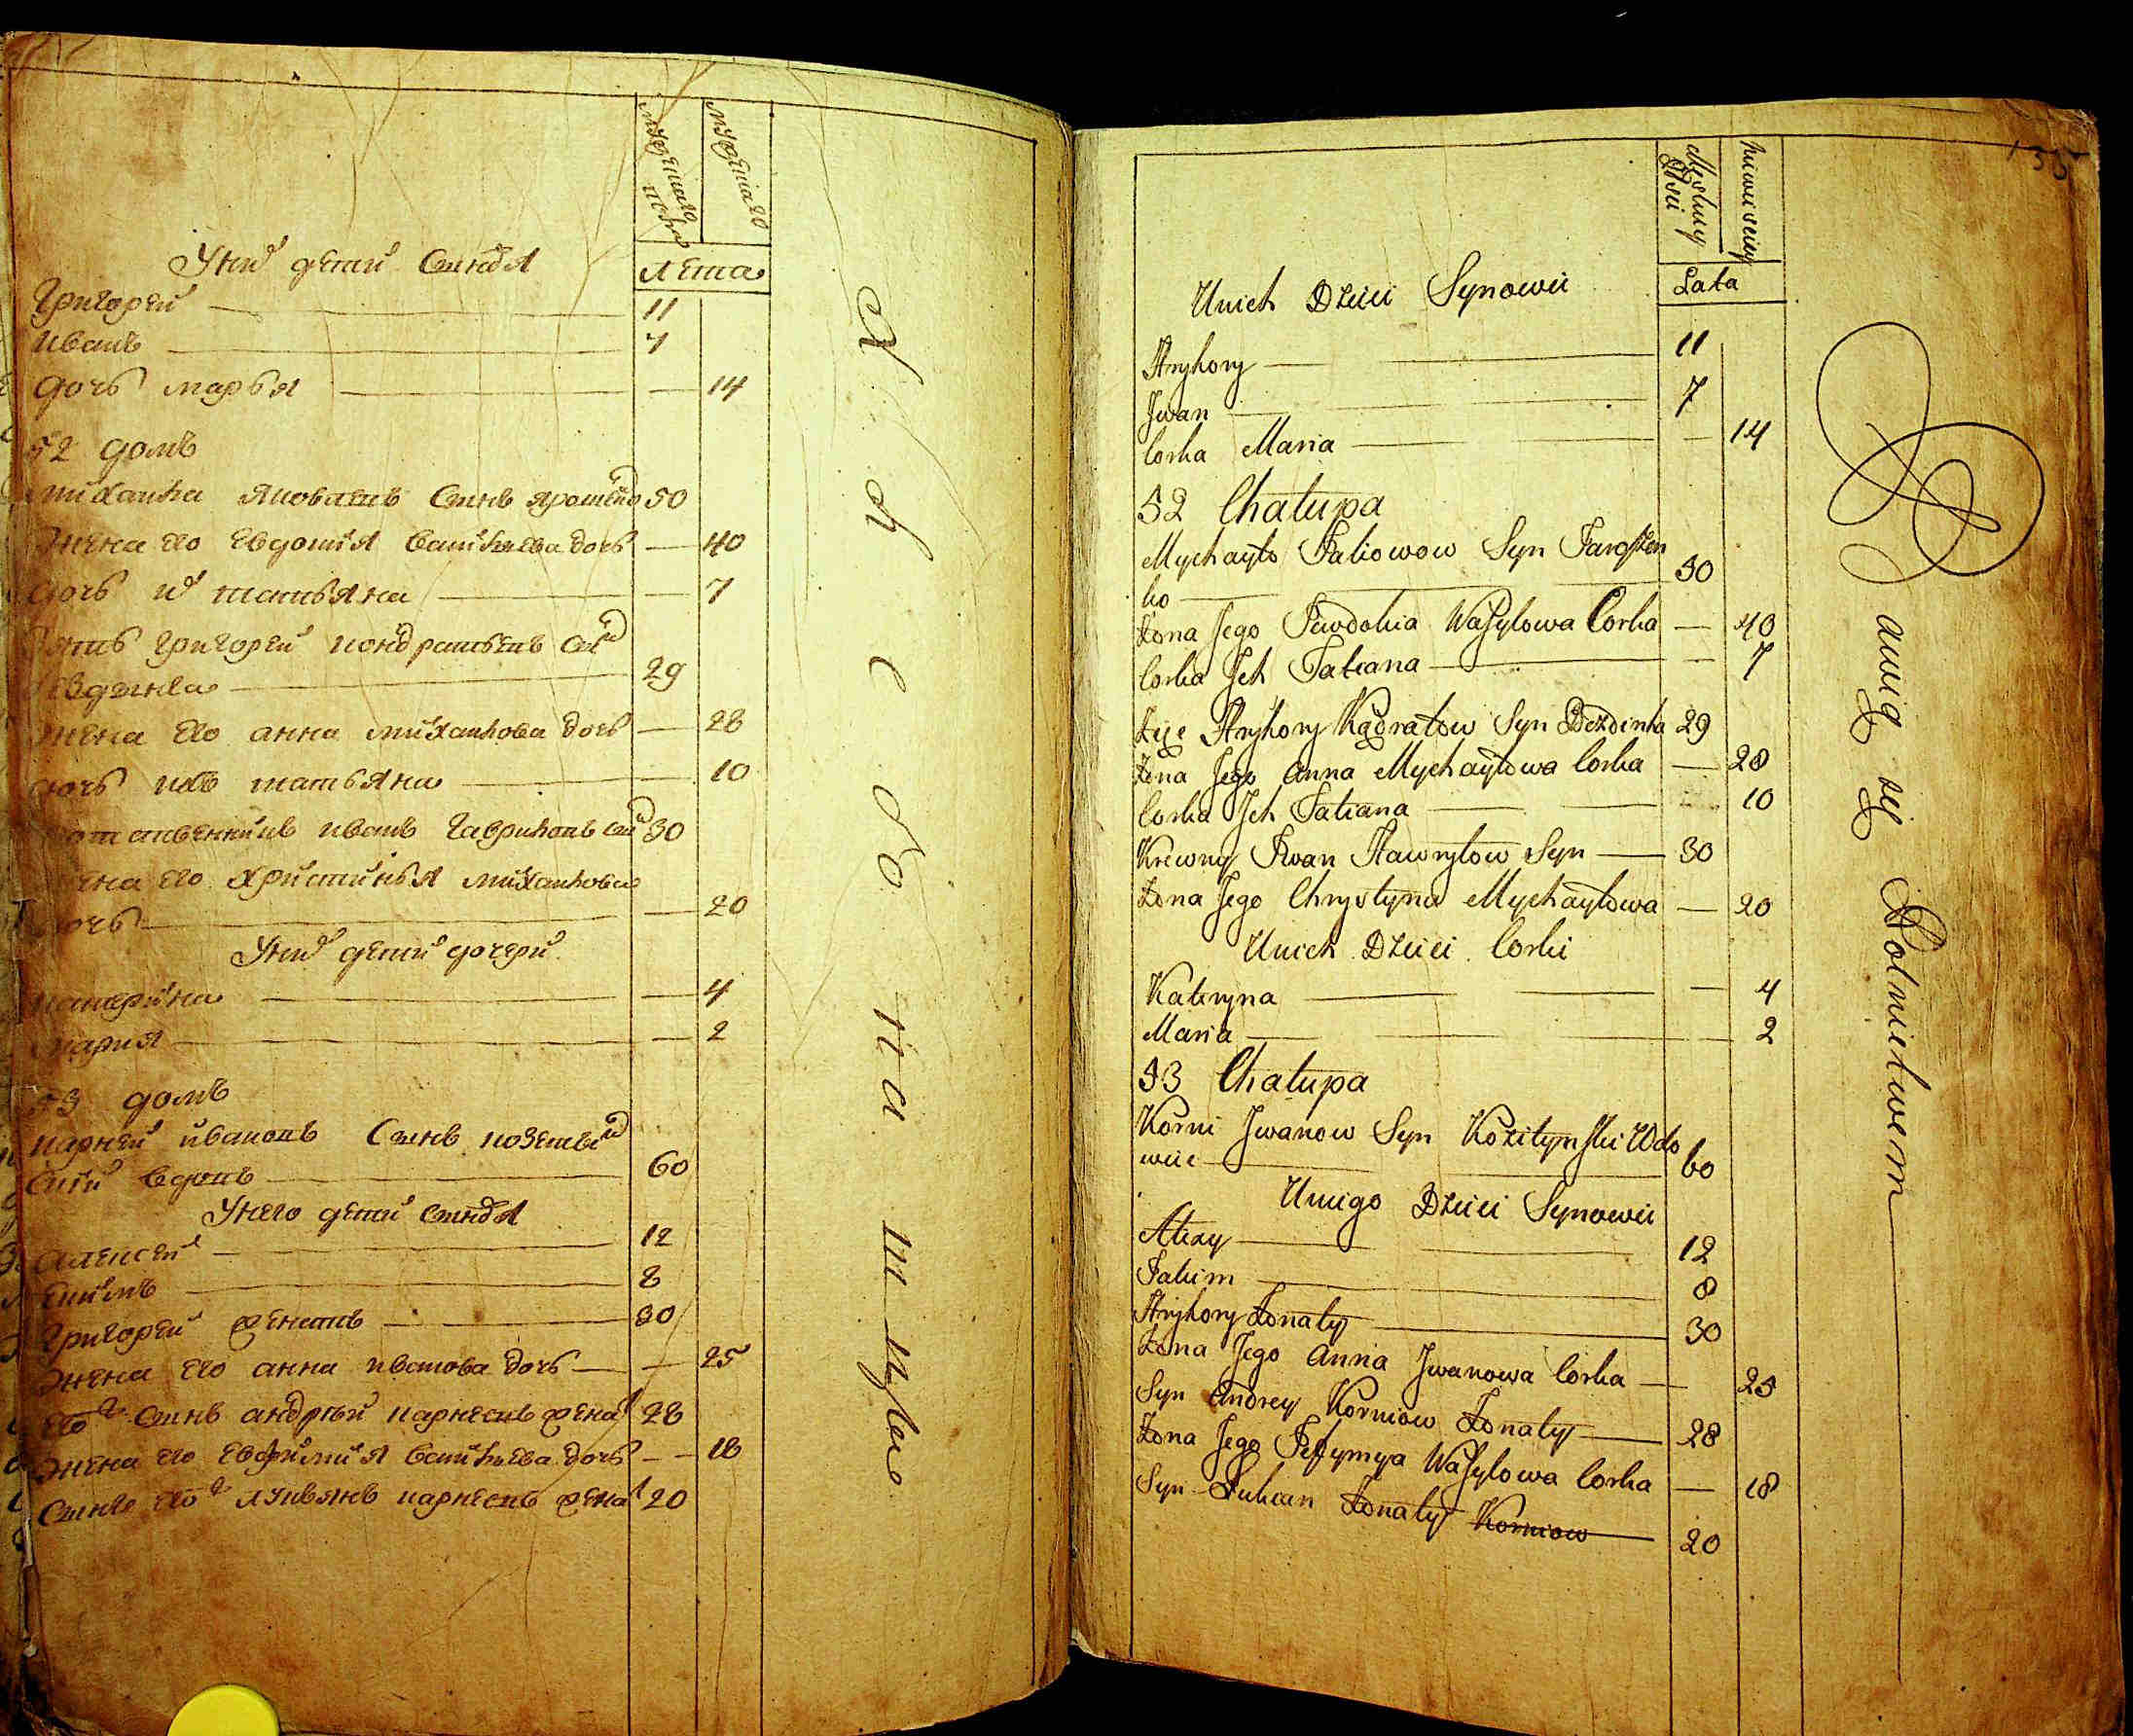 мужеска пола
женска
лета
У них детей сыновя
Григорей 11
Иванъ 7
дочь марья — 14
52 домъ
михайла яковлевъ сынъ ярошенко 50
жена его евдокия васильева дочь — 40
дочь их татьяна — 7
зять григорей кондратьевъ сынъ
бездинка 29
жена его анна михайлова дочь — 28
дочь ихъ татьяна — 10
иванъ гавриловъ сынъ 30
жена его христинья михайлова
дочь — 20
У них детей дочери
катерина — 4
мария — 2
53 домъ
карней ивановъ сынъ козетин
ский вдовъ 60
У него детей сыновя
алексей 12
екимъ 8
григорей женатъ 30
жена его анна иванова дочь — 25
его сынъ андрей карнеевъ жена 28
жена его евфимия васильева дочь — 18
сынъ его лукьянъ карнеевъ жена 20
Męskiey Płci
Niewiesciey
Lata
135
Unich Dzieci Synowie
Hryhory 11
Jwan 7
Corka Maria — 14
52 Chalupa
Mychayło Jakowow Syn Jaroszen
ko 50
Zona Jego Jewdokia Wasylowa Corka — 40
Corka Jch Tatiana — 7
Zięc Hryhory Kądratow Syn Bezdinka 29
Zona Jego Anna Mychayłowa Corka — 28
Corka Jch Tatiana — 10
Krewny Jwan Hawryłow Syn 30
Zona Jego Chrystyna Mychayłowa — 20
Unich Dzieci Corki
Kateryna — 4
Maria — 2
53 Chalupa
Korni Jwanow Syn Kozitynski Wdo
wiec 60
Uniego Dzieci Synowie
Alexy 12
Jakim 8
Hryhory Zonaty 30
Zona Jego Anna Jwanowa Corka — 25
Syn Andrey Korniow Zonaty 28
Zona Jego Jefymya Wasylowa Corka — 18
Syn Łukian Zonaty Korniow 20
Rolnictwem